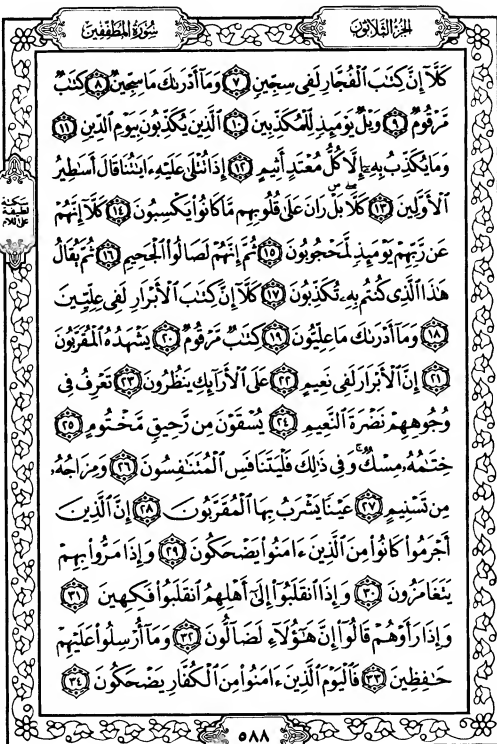 سُورَةُ المُطَفِّفِينَ
الجُزْءُ الثَّلَاثُونَ
كَلَّآ إِنَّ كِتَٰبَ ٱلْفُجَّارِ لَفِى سِجِّينٍ ٧ وَمَآ أَدْرَىٰكَ مَا سِجِّينٌ ٨ كِتَٰبٌ
مَّرْقُومٌ ٩ وَيْلٌ يَوْمَئِذٍ لِّلْمُكَذِّبِينَ ١٠ ٱلَّذِينَ يُكَذِّبُونَ بِيَوْمِ ٱلدِّينِ ١١
وَمَا يُكَذِّبُ بِهِۦٓ إِلَّا كُلُّ مُعْتَدٍ أَثِيمٍ ١٢ إِذَا تُتْلَىٰ عَلَيْهِ ءَايَٰتُنَا قَالَ أَسَٰطِيرُ
ٱلْأَوَّلِينَ ١٣ كَلَّا بَلْ رَانَ عَلَىٰ قُلُوبِهِم مَّا كَانُوا۟ يَكْسِبُونَ ١٤ كَلَّآ إِنَّهُمْ
عَن رَّبِّهِمْ يَوْمَئِذٍ لَّمَحْجُوبُونَ ١٥ ثُمَّ إِنَّهُمْ لَصَالُوا۟ ٱلْجَحِيمِ ١٦ ثُمَّ يُقَالُ
هَٰذَا ٱلَّذِى كُنتُم بِهِۦ تُكَذِّبُونَ ١٧ كَلَّآ إِنَّ كِتَٰبَ ٱلْأَبْرَارِ لَفِى عِلِّيِّينَ
١٨ وَمَآ أَدْرَىٰكَ مَا عِلِّيُّونَ ١٩ كِتَٰبٌ مَّرْقُومٌ ٢٠ يَشْهَدُهُ ٱلْمُقَرَّبُونَ
٢١ إِنَّ ٱلْأَبْرَارَ لَفِى نَعِيمٍ ٢٢ عَلَى ٱلْأَرَآئِكِ يَنظُرُونَ ٢٣ تَعْرِفُ فِى
وُجُوهِهِمْ نَضْرَةَ ٱلنَّعِيمِ ٢٤ يُسْقَوْنَ مِن رَّحِيقٍ مَّخْتُومٍ ٢٥
خِتَٰمُهُۥ مِسْكٌ ۚ وَفِى ذَٰلِكَ فَلْيَتَنَافَسِ ٱلْمُتَنَٰفِسُونَ ٢٦ وَمِزَاجُهُۥ
مِن تَسْنِيمٍ ٢٧ عَيْنًا يَشْرَبُ بِهَا ٱلْمُقَرَّبُونَ ٢٨ إِنَّ ٱلَّذِينَ
أَجْرَمُوا۟ كَانُوا۟ مِنَ ٱلَّذِينَ ءَامَنُوا۟ يَضْحَكُونَ ٢٩ وَإِذَا مَرُّوا۟ بِهِمْ
يَتَغَامَزُونَ ٣٠ وَإِذَا ٱنقَلَبُوٓا۟ إِلَىٰٓ أَهْلِهِمُ ٱنقَلَبُوا۟ فَكِهِينَ ٣١
وَإِذَا رَأَوْهُمْ قَالُوٓا۟ إِنَّ هَٰٓؤُلَآءِ لَضَآلُّونَ ٣٢ وَمَآ أُرْسِلُوا۟ عَلَيْهِمْ
حَٰفِظِينَ ٣٣ فَٱلْيَوْمَ ٱلَّذِينَ ءَامَنُوا۟ مِنَ ٱلْكُفَّارِ يَضْحَكُونَ ٣٤
سكتة
لطيفة
على اللام
٥٨٨